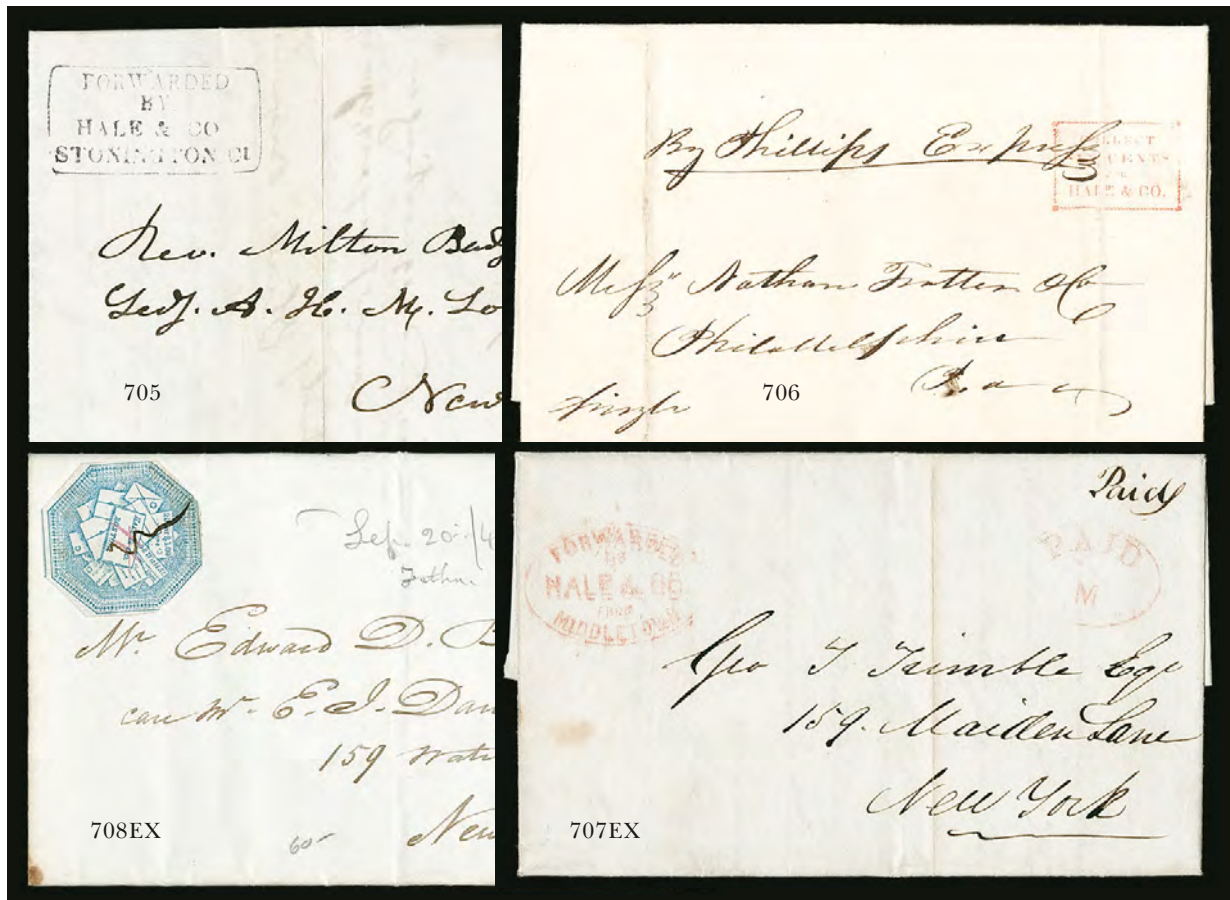 FORWARDED
BY
HALE & CO
STONINGTON Ct
Rev. Milton Badg
A. H. M. So
New
705
By Phillips Express
COLLECT
CENTS
FOR
HALE & CO.
Messrs Nathan Trotter & Co
Philadelphia
Pa
single
706
Sep. 20th/4
Mr. Edward D. B
care Mr. E. I. Dan
159 Wate
New
60-
708EX
Paid
FORWARDED
BY
HALE & CO.
FROM
MIDDLETOWN
PAID
M
Geo T Trimble Esqr
159. Maiden Lane
New York
707EX